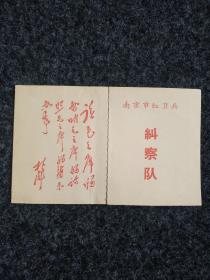 读毛主席的书
听毛主席的话
照毛主席的指示
办事
林彪
南京市红卫兵
糾察队